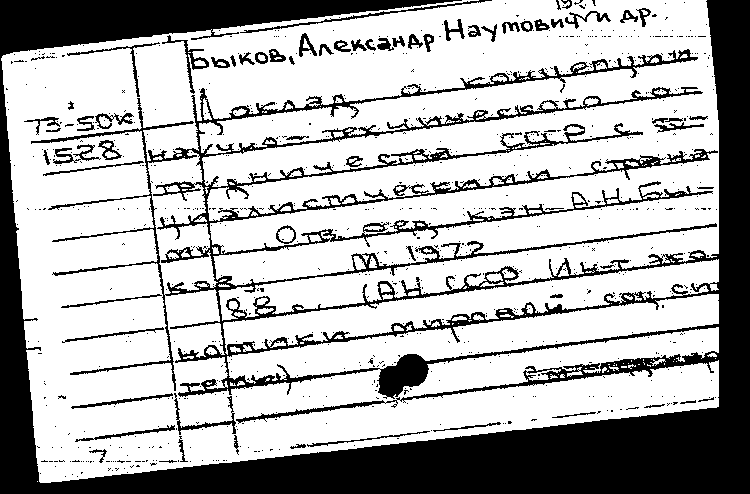 Быков, Александр Наумович и др.
73-50к
1528
Доклад о концепции
научно-технического со-
трудничества СССР с со-
циалистическими страна
ми. Отв. ред. к.эн. А.Н. Бы-
ков.
М., 1972
88 с. (АН СССР Ин-т эко-
номики мировой соц. сис
темы)
7